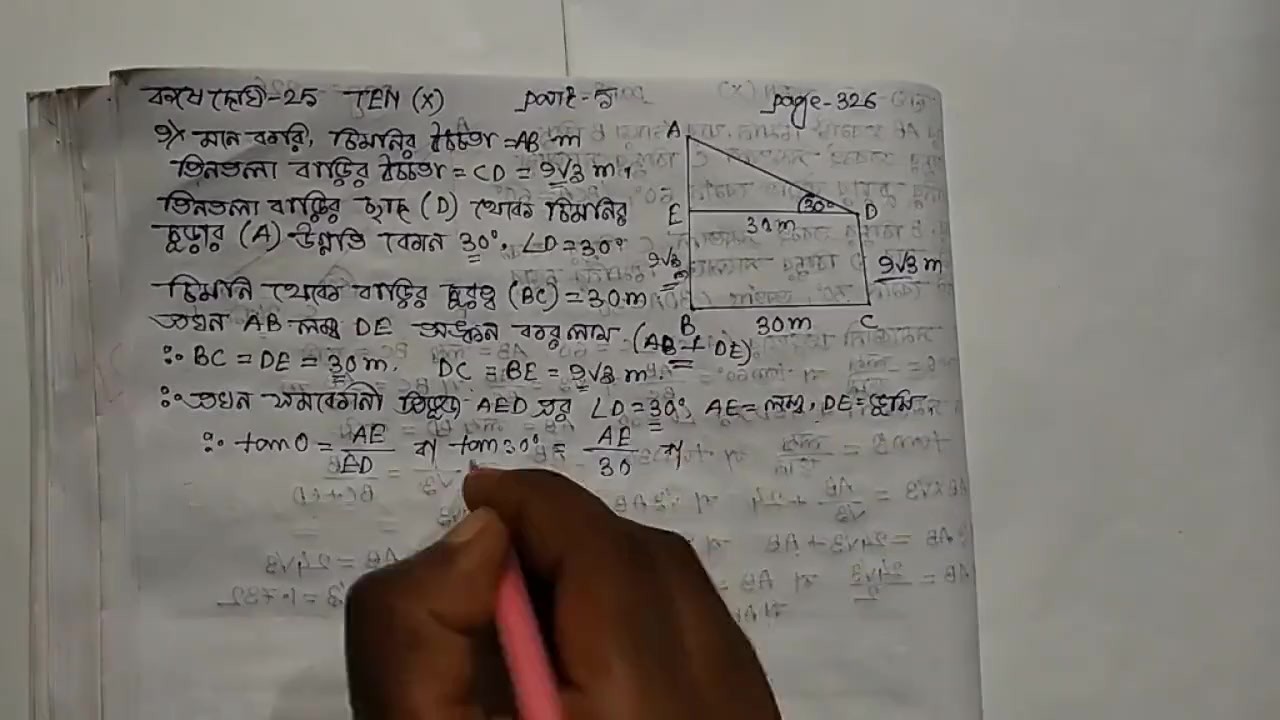 কষে দেখি-25 TEN (X) part-5 page-326
9) মান করি, চিমনির উচ্চতা = AB m
তিনতলা বাড়ির উচ্চতা = CD = 9√3 m,
তিনতলা বাড়ির ছাদ (D) থেকে চিমনির
চূড়ার (A) উন্নতি কোন 30°, ∠D = 30°
চিমনি থেকে বাড়ির দূরত্ব (BC) = 30m
তখন AB লম্ব DE অঙ্কন করলাম (AB ⊥ DE)
∴ BC = DE = 30 m. DC = BE = 9√3 m.
∴ তখন সমকোনী ত্রিভুজ AED এর ∠D = 30°, AE = লম্ব, DE = ভূমি
∴ tan θ = AE/ED বা tan 30° = AE/30 বা
A
E
30°
D
30m
9√3 m
9√3 m
B
30m
C